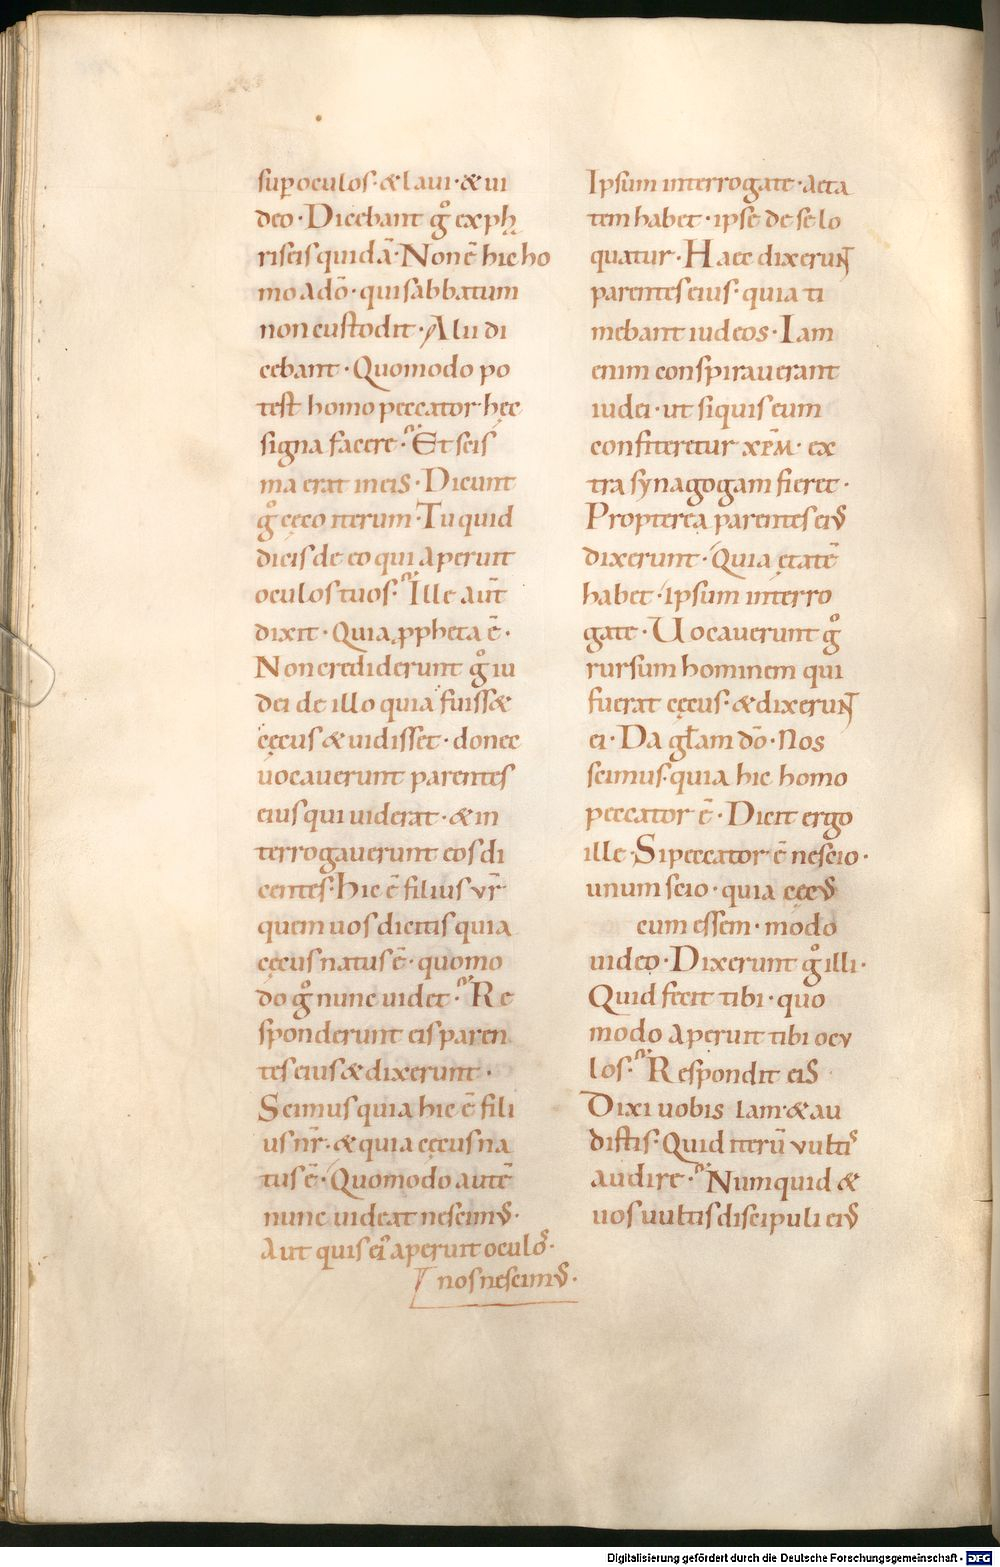 sup oculos· & laui· & ui
deo· Dicebant g̊ ex ph
riseis quidā· Non ē hic ho
mo a dō· qui sabbatum
non custodit· Alii di
cebant· Quomodo po
test homo peccator hęc
signa facere· Et scis
ma erat in eis· Dicunt
g̊ cęco iterum· Tu quid
dicis de eo qui aperuit
oculos tuos· Ille aut̄
dixit· Quia ꝓpheta ē·
Non crediderunt g̊ iu
dei de illo quia fuiss&
cęcus & uidisset· donec
uocauerunt parentes
eius qui uiderat· & in
terrogauerunt eos di
centes· Hic ē filius vr̄
quem uos dicitis quia
cęcus natus ē· quomo
do g̊ nunc uidet· Re
sponderunt eis paren
tes eius & dixerunt·
Scimus quia hic ē fili
us nr̄· & quia cęcus na
tus ē· Quomodo autē
nunc uideat nescimꝰ·
Aut quis eiꝰ aperuit oculoꝰ·
nos nescimꝰ·
Ipsum interrogate· aeta
tem habet· ipse de se lo
quatur· Haec dixerunt
parentes eius· quia ti
mebant iudeos· Iam
enim conspirauerant
iudei· ut si quis eum
confiteretur xp̄m· ex
tra synagogam fieret·
Propterea parentes eiꝰ
dixerunt· Quia ętatē
habet· ipsum interro
gate· Uocauerunt g̊
rursum hominem qui
fuerat cęcus· & dixerunt
ei· Da gl̄am dō· Nos
scimus· quia hic homo
peccator ē· Dicit ergo
ille· Si peccator ē nescio·
unum scio· quia cęcꝰ
cum essem· modo
uideo· Dixerunt g̊ illi·
Quid fecit tibi· quo
modo aperuit tibi ocv
los· Respondit eis
Dixi uobis iam· & au
distis· Quid iterū vultis
audire· Numquid &
uos uultis discipuli eiꝰ
Digitalisierung gefördert durch die Deutsche Forschungsgemeinschaft - DFG